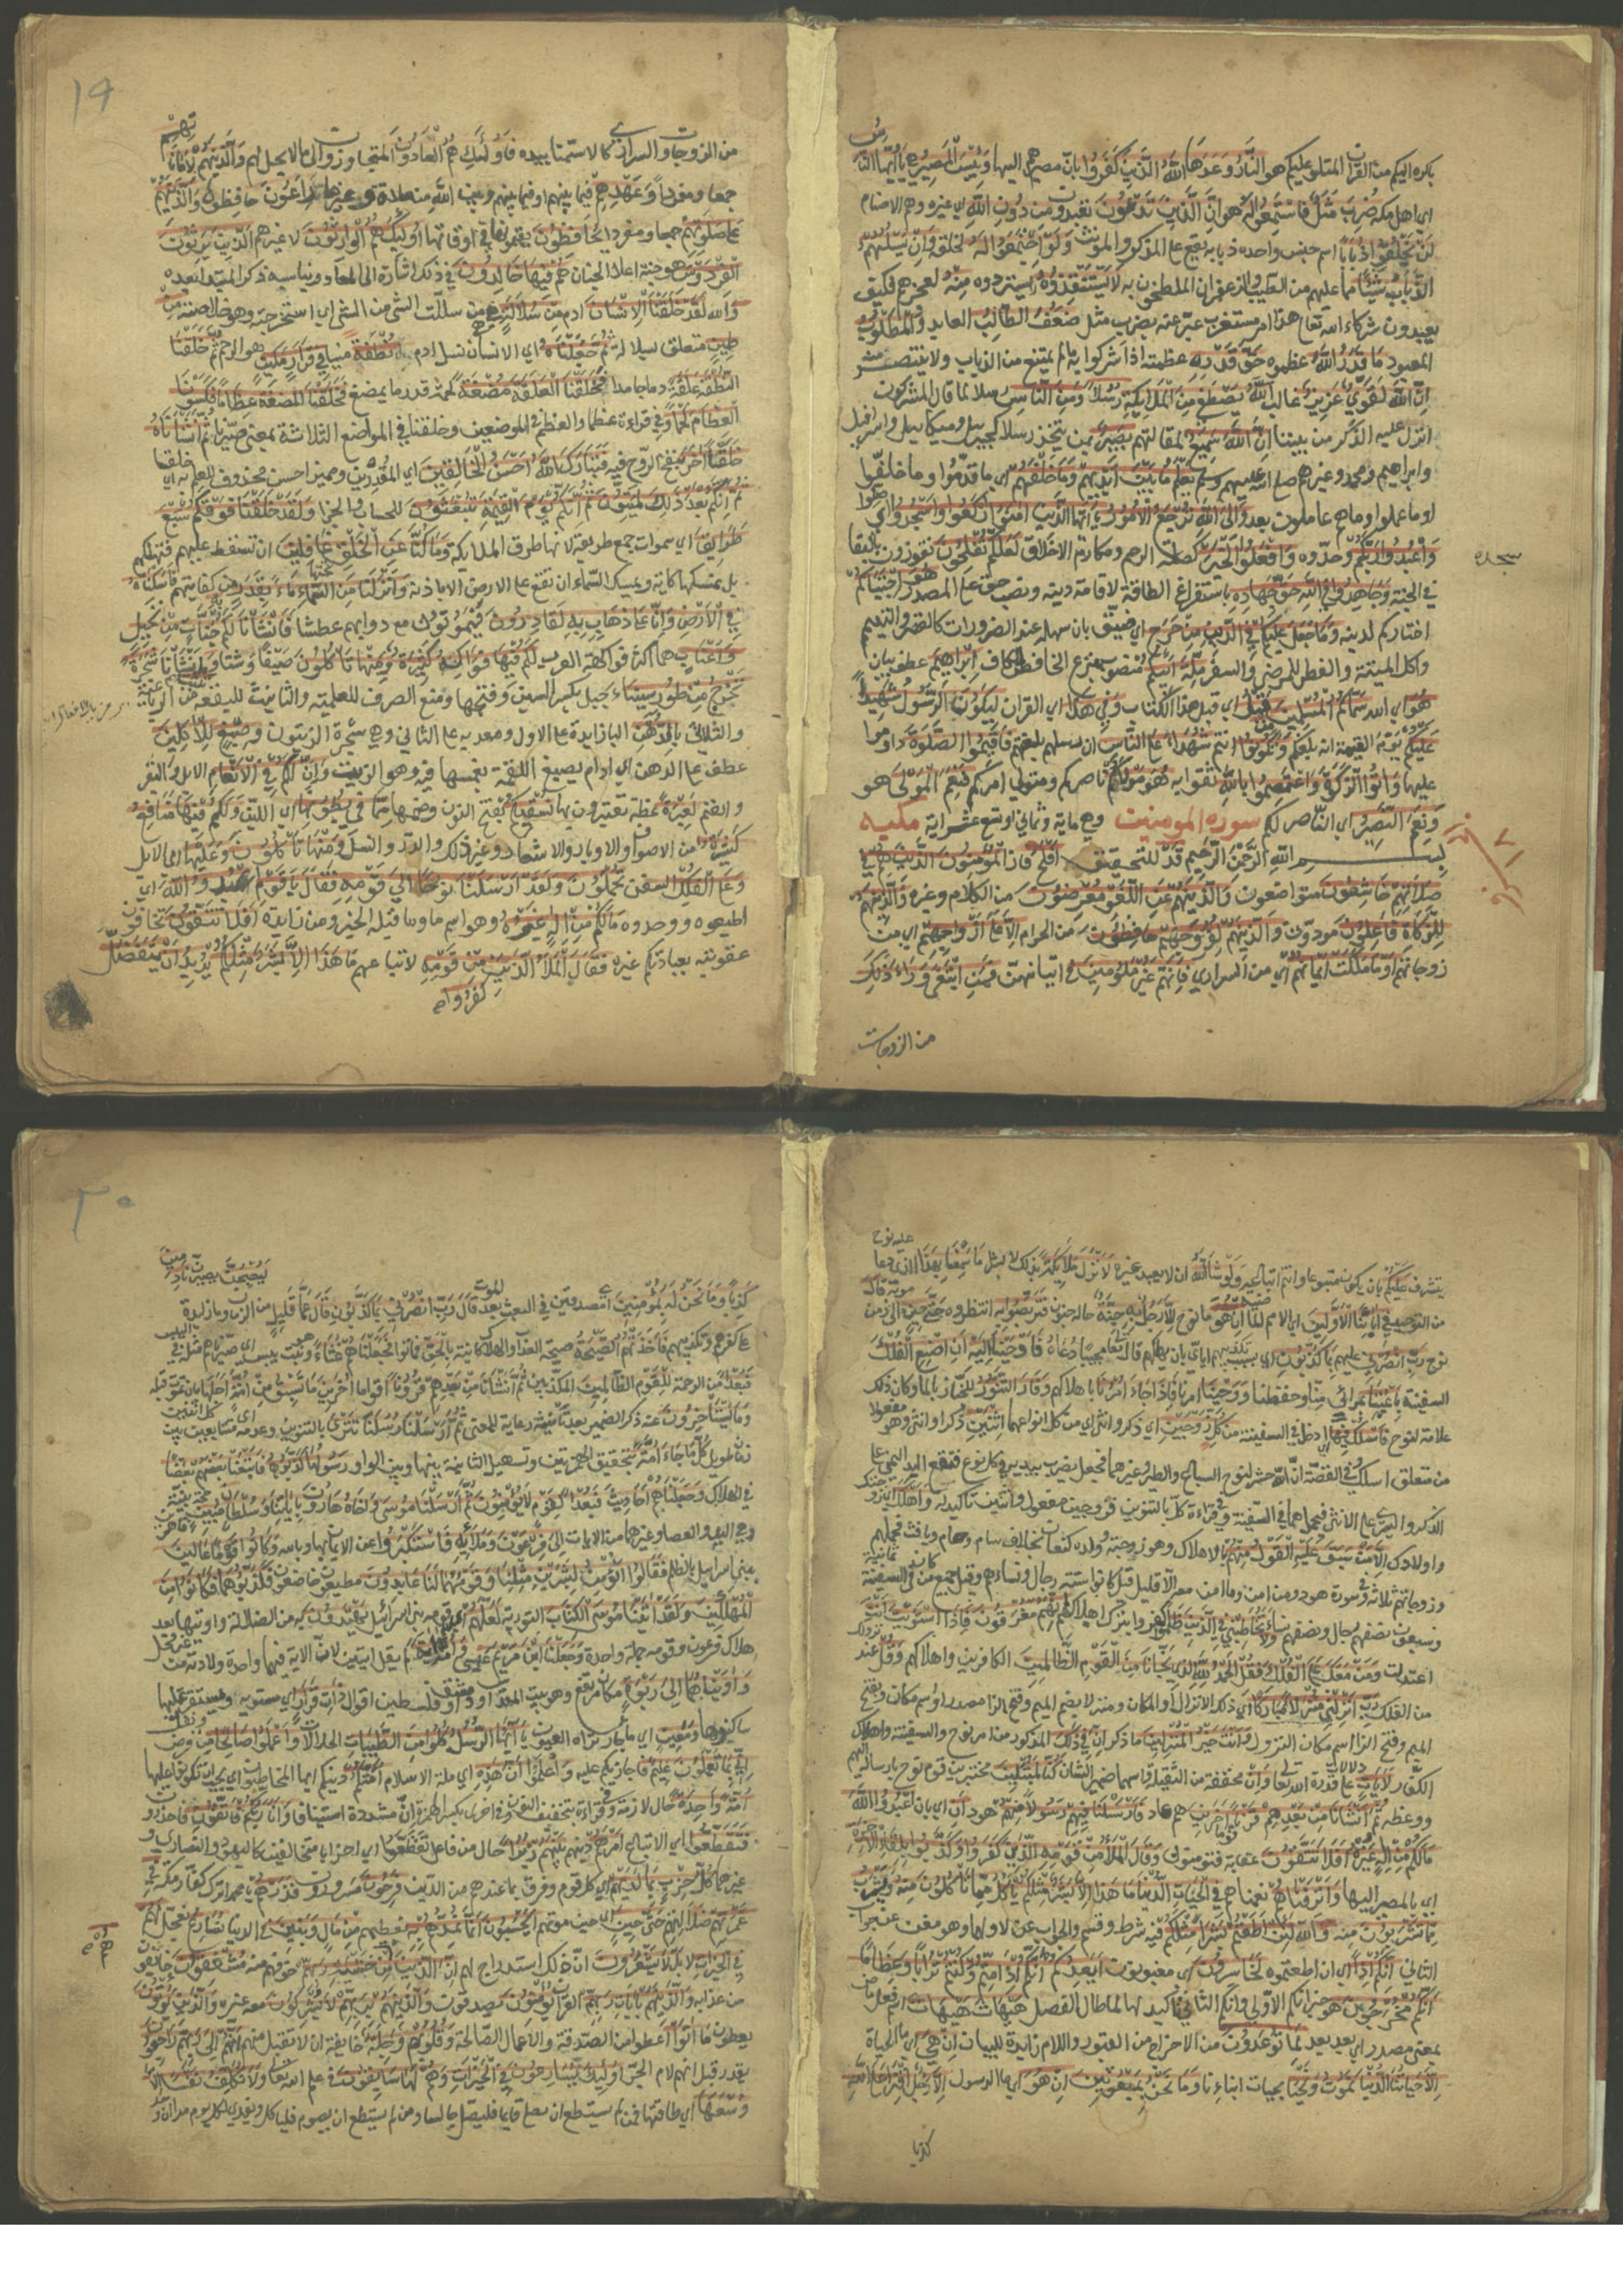 بكره اليكم من القران المتلو عليكم هو النَّارُ وَعَدَهَا اللَّهُ الَّذِينَ كَفَرُوا بان مصيرهم اليها وَبِئْسَ الْمَصِيرُ هي يَا أَيُّهَا النَّاسُ
اي اهل مكه ضُرِبَ مَثَلٌ فَاسْتَمِعُوا لَهُ هو إِنَّ الَّذِينَ تَدْعُونَ تعبدون مِن دُونِ اللَّهِ اي غيره وهم الاصنام
لَن يَخْلُقُوا ذُبَابًا اسم جنس واحده ذبابه يقع على المذكر والمونث وَلَوِ اجْتَمَعُوا لَهُ لخلقه وَإِن يَسْلُبْهُمُ
الذُّبَابُ شَيْئًا مما عليهم من الطيب والزعفران الملطخون به لَّا يَسْتَنقِذُوهُ يستردوه مِنْهُ لعجزهم فكيف
يعبدون شركاء الله تعالى هذا امر مستغرب عبر عنه بضرب مثل ضَعُفَ الطَّالِبُ العابد وَالْمَطْلُوبُ
المعبود مَا قَدَرُوا اللَّهَ عظموه حَقَّ قَدْرِهِ عظمته اذ اشركوا به ما لم يمتنع من الذباب ولا ينتصر منه
إِنَّ اللَّهَ لَقَوِيٌّ عَزِيزٌ غالب اللَّهُ يَصْطَفِي مِنَ الْمَلَائِكَةِ رُسُلًا وَمِنَ النَّاسِ رسلا لما قال المشركون
انزل عليه الذكر من بيننا إِنَّ اللَّهَ سَمِيعٌ لمقالتهم بَصِيرٌ بمن يتخذ رسلا كجبريل وميكاييل واسرافيل
وابراهيم ومحمد وغيرهم صلى الله عليهم وسلم يَعْلَمُ مَا بَيْنَ أَيْدِيهِمْ وَمَا خَلْفَهُمْ اي ما قدموا وما خلفوا
او ما عملوا وما هم عاملون بعد وَإِلَى اللَّهِ تُرْجَعُ الْأُمُورُ يَا أَيُّهَا الَّذِينَ آمَنُوا ارْكَعُوا وَاسْجُدُوا اي صلوا
وَاعْبُدُوا رَبَّكُمْ وحدوه وَافْعَلُوا الْخَيْرَ كصلة الرحم ومكارم الاخلاق لَعَلَّكُمْ تُفْلِحُونَ تفوزون بالبقا
سجده
في الجنة وَجَاهِدُوا فِي اللَّهِ حَقَّ جِهَادِهِ باستفراغ الطاقة لاقامة دينه ونصب حق على المصدر هُوَ اجْتَبَاكُمْ
اختاركم لدينه وَمَا جَعَلَ عَلَيْكُمْ فِي الدِّينِ مِنْ حَرَجٍ اي ضيق بان سهله عند الضرورات كالقصر والتيمم
واكل الميتة والفطر للمرض والسفر مِّلَّةَ أَبِيكُمْ منصوب بنزع الخافض الكاف إِبْرَاهِيمَ عطف بيان
هُوَ اي الله سَمَّاكُمُ الْمُسْلِمِينَ مِن قَبْلُ اي قبل هذا الكتاب وَفِي هَٰذَا اي القران لِيَكُونَ الرَّسُولُ شَهِيدًا
عَلَيْكُمْ يوم القيمة انه بلغكم وَتَكُونُوا انتم شُهَدَاءَ عَلَى النَّاسِ ان رسلهم بلغتهم فَأَقِيمُوا الصَّلَاةَ داوموا
عليها وَآتُوا الزَّكَاةَ وَاعْتَصِمُوا بِاللَّهِ ثقوا به هُوَ مَوْلَاكُمْ ناصركم ومتولي اموركم فَنِعْمَ الْمَوْلَىٰ هو
وَنِعْمَ النَّصِيرُ اي الناصر لكم سورة المومنين وهي ماية وثماني او تسع عشر اية مكيه
بسم الله الرحمن الرحيم قَدْ للتحقيق أَفْلَحَ فاز الْمُؤْمِنُونَ الَّذِينَ هُمْ فِي
صَلَاتِهِمْ خَاشِعُونَ متواضعون وَالَّذِينَ هُمْ عَنِ اللَّغْوِ مُعْرِضُونَ من الكلام وغيره وَالَّذِينَ هُمْ
لِلزَّكَاةِ فَاعِلُونَ مودون وَالَّذِينَ هُمْ لِفُرُوجِهِمْ حَافِظُونَ من الحرام إِلَّا عَلَىٰ أَزْوَاجِهِمْ اي من
زوجاتهم أَوْ مَا مَلَكَتْ أَيْمَانُهُمْ اي من السراري فَإِنَّهُمْ غَيْرُ مَلُومِينَ في اتيانهن فَمَنِ ابْتَغَىٰ وَرَاءَ ذَٰلِكَ
من الزوجات
١٩
من الزوجات والسراري كالاستمنا بيده فَأُولَٰئِكَ هُمُ الْعَادُونَ المتجاوزون الى ما لا يحل لهم وَالَّذِينَ هُمْ لِأَمَانَاتِهِمْ
جمعا ومفردا وَعَهْدِهِمْ فيما بينهم او فيما بينهم وبين الله من صلاة وغيرها رَاعُونَ حافظون وَالَّذِينَ هُمْ
عَلَىٰ صَلَوَاتِهِمْ جمعا ومفردا يُحَافِظُونَ يقيمونها في اوقاتها أُولَٰئِكَ هُمُ الْوَارِثُونَ لا غيرهم الَّذِينَ يَرِثُونَ
الْفِرْدَوْسَ هو جنة اعلا الجنان هُمْ فِيهَا خَالِدُونَ في ذلك اشارة الى المعاد ويناسبه ذكر المبتدا بعده
وَ الله لَقَدْ خَلَقْنَا الْإِنسَانَ ادم مِن سُلَالَةٍ هي من سللت الشي من الشي اي استخرجته وهو خلاصته مِّن
طِينٍ متعلق بسلالة ثُمَّ جَعَلْنَاهُ اي الانسان نسل ادم نُطْفَةً منيا فِي قَرَارٍ مَّكِينٍ هو الرحم ثُمَّ خَلَقْنَا
النُّطْفَةَ عَلَقَةً دما جامدا فَخَلَقْنَا الْعَلَقَةَ مُضْغَةً لحمة قدر ما يمضغ فَخَلَقْنَا الْمُضْغَةَ عِظَامًا فَكَسَوْنَا
الْعِظَامَ لَحْمًا وفي قراءة عظما والعظم في الموضعين وخلقنا في المواضع الثلاثة بمعنى صيرنا ثُمَّ أَنشَأْنَاهُ
خَلْقًا آخَرَ بنفخ الروح فيه فَتَبَارَكَ اللَّهُ أَحْسَنُ الْخَالِقِينَ اي المقدرين ومميز احسن محذوف للعلم به اي خلقا
ثُمَّ إِنَّكُم بَعْدَ ذَٰلِكَ لَمَيِّتُونَ ثُمَّ إِنَّكُمْ يَوْمَ الْقِيَامَةِ تُبْعَثُونَ للحساب والجزا وَلَقَدْ خَلَقْنَا فَوْقَكُمْ سَبْعَ
طَرَائِقَ اي سموات جمع طريقة لانها طرق الملايكة وَمَا كُنَّا عَنِ الْخَلْقِ تحتها غَافِلِينَ ان تسقط عليهم فتهلكهم
بل نمسكها كاية ويمسك السماء ان تقع على الارض الا باذنه وَأَنزَلْنَا مِنَ السَّمَاءِ مَاءً بِقَدَرٍ من كفايتهم فَأَسْكَنَّاهُ
فِي الْأَرْضِ وَإِنَّا عَلَىٰ ذَهَابٍ بِهِ لَقَادِرُونَ فيموتون مع دوابهم عطشا فَأَنشَأْنَا لَكُم بِهِ جَنَّاتٍ مِّن نَّخِيلٍ
وَأَعْنَابٍ هما اكثر فواكه العرب لَّكُمْ فِيهَا فَوَاكِهُ كَثِيرَةٌ وَمِنْهَا تَأْكُلُونَ صيفا وشتا و انشانا شَجَرَةً
تَخْرُجُ مِن طُورِ سَيْنَاءَ جبل بكسر السين وفتحها ومنع الصرف للعلمية والتانيث للبقعة تَنبُتُ من الرباعي
والثلاثي بِالدُّهْنِ البا زايدة على الاول ومعدية على الثاني وهي شجرة الزيتون وَصِبْغٍ لِّلْآكِلِينَ
عطف على الدهن اي ادام يصبغ اللقمة بغمسها فيه وهو الزيت وَإِنَّ لَكُمْ فِي الْأَنْعَامِ الابل والبقر
والغنم لَعِبْرَةً عظة تعتبرون بها نُّسْقِيكُم بفتح النون وضمها مِّمَّا فِي بُطُونِهَا اي اللبن وَلَكُمْ فِيهَا مَنَافِعُ
كَثِيرَةٌ من الاصواف والاوبار والاشعار وغير ذلك والدر والنسل وَمِنْهَا تَأْكُلُونَ وَعَلَيْهَا اي الابل
وَعَلَى الْفُلْكِ السفن تُحْمَلُونَ وَلَقَدْ أَرْسَلْنَا نُوحًا إِلَىٰ قَوْمِهِ فَقَالَ يَا قَوْمِ اعْبُدُوا اللَّهَ اي
اطيعوه ووحدوه مَا لَكُم مِّنْ إِلَٰهٍ غَيْرُهُ وهو اسم ما وما قبله الخبر ومن زايدة أَفَلَا تَتَّقُونَ تخافون
عقوبته بعبادتكم غيره فَقَالَ الْمَلَأُ الَّذِينَ مِن قَوْمِهِ لاتباعهم مَا هَٰذَا إِلَّا بَشَرٌ مِّثْلُكُمْ يُرِيدُ أَن يَتَفَضَّلَ
كفروا
يتشرف عَلَيْكُمْ بان يكون متبوعا وانتم اتباعه وَلَوْ شَاءَ اللَّهُ ان لا يعبد غيره لَأَنزَلَ مَلَائِكَةً بذلك لا بشر مَّا سَمِعْنَا بِهَٰذَا الذي دعا
من التوحيد فِي آبَائِنَا الْأَوَّلِينَ اي الامم الماضية إِنْ هُوَ ما نوح إِلَّا رَجُلٌ بِهِ جِنَّةٌ حالة جنون فَتَرَبَّصُوا بِهِ انتظروه حَتَّىٰ حِينٍ الى زمن
نوح رَبِّ انصُرْنِي عليهم بِمَا كَذَّبُونِ اي بسبب تكذيبهم اياي بان يهلكهم قال تعالى مجيبا دعاه فَأَوْحَيْنَا إِلَيْهِ أَنِ اصْنَعِ الْفُلْكَ
السفينة بِأَعْيُنِنَا بمرائى منا وحفظنا وَوَحْيِنَا امرنا فَإِذَا جَاءَ أَمْرُنَا باهلاكهم وَفَارَ التَّنُّورُ للخباز بالماء وكان ذلك
علامة لنوح فَاسْلُكْ فِيهَا اي ادخل في السفينة مِن كُلٍّ زَوْجَيْنِ اي ذكر وانثى اي من كل انواعهما اثْنَيْنِ ذكرا وانثى وهو مفعول
من متعلق باسلك وفي القصة ان الله حشر لنوح السباع والطير وغيرهما فجعل يضرب بيديه في كل نوع فتقع اليد اليمنى على
الذكر واليسرى على الانثى فيحملهما في السفينة وفي قراءة كل بالتنوين فزوجين مفعول واثنين تاكيد له وَأَهْلَكَ
واولادك إِلَّا مَن سَبَقَ عَلَيْهِ الْقَوْلُ مِنْهُمْ بالاهلاك وهو زوجته وولده كنعان بخلاف سام وحام ويافث فحملهم
وزوجاتهم ثلاثة وفي سورة هود ومن امن وما امن معه الا قليل قيل كانوا ستة رجال ونساءهم وقيل جميع من كان في السفينة ثمانية
وسبعون نصفهم رجال ونصفهم نساء وَلَا تُخَاطِبْنِي فِي الَّذِينَ ظَلَمُوا كفروا بترك اهلاكهم إِنَّهُم مُّغْرَقُونَ فَإِذَا اسْتَوَيْتَ أَنتَ
اعتدلت وَمَن مَّعَكَ عَلَى الْفُلْكِ فَقُلِ الْحَمْدُ لِلَّهِ الَّذِي نَجَّانَا مِنَ الْقَوْمِ الظَّالِمِينَ الكافرين واهلاكهم وَقُل عند نزولك
من الفلك رَّبِّ أَنزِلْنِي مُنزَلًا مُّبَارَكًا اي ذلك الانزال او المكان ومنزلا بضم الميم وفتح الزا مصدر او اسم مكان وبفتح
الميم وفتح الزا اسم مكان النزول وَأَنتَ خَيْرُ الْمُنزِلِينَ ما ذكر إِنَّ فِي ذَٰلِكَ المذكور من امر نوح والسفينة واهلاك
الكفار لَآيَاتٍ دلالات على قدرة الله تعالى وَإِن مخففة من الثقيلة واسمها ضمير الشان كُنَّا لَمُبْتَلِينَ مختبرين قوم نوح بارساله اليهم
ووعظه ثُمَّ أَنشَأْنَا مِن بَعْدِهِمْ قَرْنًا آخَرِينَ هم عاد فَأَرْسَلْنَا فِيهِمْ رَسُولًا مِّنْهُمْ هود أَنِ اي بان اعْبُدُوا اللَّهَ
مَا لَكُم مِّنْ إِلَٰهٍ غَيْرُهُ أَفَلَا تَتَّقُونَ عقابه فتومنون وَقَالَ الْمَلَأُ مِن قَوْمِهِ الَّذِينَ كَفَرُوا وَكَذَّبُوا بِلِقَاءِ الْآخِرَةِ
اي بالمصير اليها وَأَتْرَفْنَاهُمْ نعمناهم فِي الْحَيَاةِ الدُّنْيَا مَا هَٰذَا إِلَّا بَشَرٌ مِّثْلُكُمْ يَأْكُلُ مِمَّا تَأْكُلُونَ مِنْهُ وَيَشْرَبُ
مِمَّا تَشْرَبُونَ منه وَ الله لَئِنْ أَطَعْتُم بَشَرًا مِّثْلَكُمْ فيه شرط وقسم والجواب عن لاولهما وهو مغن عن جواب
الثاني إِنَّكُمْ إِذًا اي ان اطعتموه لَّخَاسِرُونَ اي مغبونون أَيَعِدُكُمْ أَنَّكُمْ إِذَا مِتُّمْ وَكُنتُمْ تُرَابًا وَعِظَامًا
أَنَّكُم مُّخْرَجُونَ هو خبر انكم الاولى وانكم الثانية تاكيد لها لما طال الفصل هَيْهَاتَ هَيْهَاتَ اسم فعل ماض
بمعنى مصدر اي بعد بعد لِمَا تُوعَدُونَ من الاخراج من القبور واللام زايدة للبيان إِنْ هِيَ اي ما الحياة
إِلَّا حَيَاتُنَا الدُّنْيَا نَمُوتُ وَنَحْيَا بحيات ابناءنا وَمَا نَحْنُ بِمَبْعُوثِينَ إِنْ هُوَ اي ما الرسول إِلَّا رَجُلٌ افْتَرَىٰ عَلَى اللَّهِ
كذبا
٢٠
كَذِبًا وَمَا نَحْنُ لَهُ بِمُؤْمِنِينَ اي مصدقين في البعث بعد الموت قَالَ رَبِّ انصُرْنِي بِمَا كَذَّبُونِ قَالَ عَمَّا قَلِيلٍ من الزمان وما زايدة لَّيُصْبِحُنَّ يصيرن نَادِمِينَ
على كفرهم وتكذيبهم فَأَخَذَتْهُمُ الصَّيْحَةُ صيحة العذاب والهلاك كاينة بِالْحَقِّ فماتوا فَجَعَلْنَاهُمْ غُثَاءً وهو نبت يبس اي صيرناهم مثله في اليبس
فَبُعْدًا من الرحمة لِّلْقَوْمِ الظَّالِمِينَ المكذبين ثُمَّ أَنشَأْنَا مِن بَعْدِهِمْ قُرُونًا اقواما آخَرِينَ مَا تَسْبِقُ مِنْ أُمَّةٍ أَجَلَهَا بان تموت قبله
وَمَا يَسْتَأْخِرُونَ عنه ذكر الضمير بعد تانيثه رعاية للمعنى ثُمَّ أَرْسَلْنَا رُسُلَنَا تَتْرَىٰ بالتنوين وعدمه متتابعين بين كل اثنين
زمان طويل كُلَّ مَا جَاءَ أُمَّةً بتحقيق الهمزتين وتسهيل الثانية بينها وبين الواو رَّسُولُهَا كَذَّبُوهُ فَأَتْبَعْنَا بَعْضَهُم بَعْضًا
في الهلاك وَجَعَلْنَاهُمْ أَحَادِيثَ فَبُعْدًا لِّقَوْمٍ لَّا يُؤْمِنُونَ ثُمَّ أَرْسَلْنَا مُوسَىٰ وَأَخَاهُ هَارُونَ بِآيَاتِنَا وَسُلْطَانٍ مُّبِينٍ حجة بينة
وهي اليد والعصا وغيرهما من الايات إِلَىٰ فِرْعَوْنَ وَمَلَئِهِ فَاسْتَكْبَرُوا عن الايمان بها وبالله وَكَانُوا قَوْمًا عَالِينَ قاهرين
بني اسرائيل بالظلم فَقَالُوا أَنُؤْمِنُ لِبَشَرَيْنِ مِثْلِنَا وَقَوْمُهُمَا لَنَا عَابِدُونَ مطيعون خاضعون فَكَذَّبُوهُمَا فَكَانُوا مِنَ
الْمُهْلَكِينَ وَلَقَدْ آتَيْنَا مُوسَى الْكِتَابَ التورية لَعَلَّهُمْ اي قومه بني اسرائيل يَهْتَدُونَ به من الضلالة واوتيها بعد
هلاك فرعون وقومه جملة واحدة وَجَعَلْنَا ابْنَ مَرْيَمَ عيسى وَأُمَّهُ آيَةً لم يقل ايتين لان الاية فيهما واحدة ولادته من غير فحل
وَآوَيْنَاهُمَا إِلَىٰ رَبْوَةٍ مكان مرتفع وهو بيت المقدس او دمشق او فلسطين اقوال ذَاتِ قَرَارٍ اي مستوية يستقر عليها
ساكنوها وَمَعِينٍ اي ماء جار تراه العيون يَا أَيُّهَا الرُّسُلُ كُلُوا مِنَ الطَّيِّبَاتِ الحلالات وَاعْمَلُوا صَالِحًا من فرض ونفل
إِنِّي بِمَا تَعْمَلُونَ عَلِيمٌ فاجازيكم عليه وَ اعلموا أَنَّ هَٰذِهِ اي ملة الاسلام أُمَّتُكُمْ دينكم ايها المخاطبون اي يجب ان تكونوا عليها
أُمَّةً وَاحِدَةً حال لازمة وفي قراءة بتخفيف النون وفي اخرى بكسر الهمزة وان مشددة استينافا وَأَنَا رَبُّكُمْ فَاتَّقُونِ فاحذرون
فَتَقَطَّعُوا اي الاتباع أَمْرَهُم دينهم بَيْنَهُمْ زُبُرًا حال من فاعل تقطعوا اي احزابا متخالفين كاليهود والنصارى و
غيرهما كُلُّ حِزْبٍ بِمَا لَدَيْهِمْ اي كل قوم وفرق بما عندهم من الدين فَرِحُونَ مسرورون فَذَرْهُمْ يا محمد اترك كفار مكة فِي
غَمْرَتِهِمْ ضلالتهم حَتَّىٰ حِينٍ اي حين موتهم أَيَحْسَبُونَ أَنَّمَا نُمِدُّهُم بِهِ نعطيهم مِن مَّالٍ وَبَنِينَ في الدنيا نُسَارِعُ نعجل لَهُمْ
فِي الْخَيْرَاتِ لا بَل لَّا يَشْعُرُونَ ان ذلك استدراج لهم إِنَّ الَّذِينَ هُم مِّنْ خَشْيَةِ رَبِّهِم خوفهم منه مُّشْفِقُونَ خايفون
من عذابه وَالَّذِينَ هُم بِآيَاتِ رَبِّهِمْ القران يُؤْمِنُونَ يصدقون وَالَّذِينَ هُم بِرَبِّهِمْ لَا يُشْرِكُونَ معه غيره وَالَّذِينَ يُؤْتُونَ
يعطون مَا آتَوا اعطوا من الصدقة والاعمال الصالحة وَّقُلُوبُهُمْ وَجِلَةٌ خايفة ان لا تقبل منهم أَنَّهُمْ إِلَىٰ رَبِّهِمْ رَاجِعُونَ
يقدر قبل انهم لام الجر أُولَٰئِكَ يُسَارِعُونَ فِي الْخَيْرَاتِ وَهُمْ لَهَا سَابِقُونَ في علم الله تعالى وَلَا نُكَلِّفُ نَفْسًا إِلَّا
وُسْعَهَا اي طاقتها فمن لم يستطع ان يصلي قايما فليصل جالسا ومن لم يستطع ان يصوم فلياكل